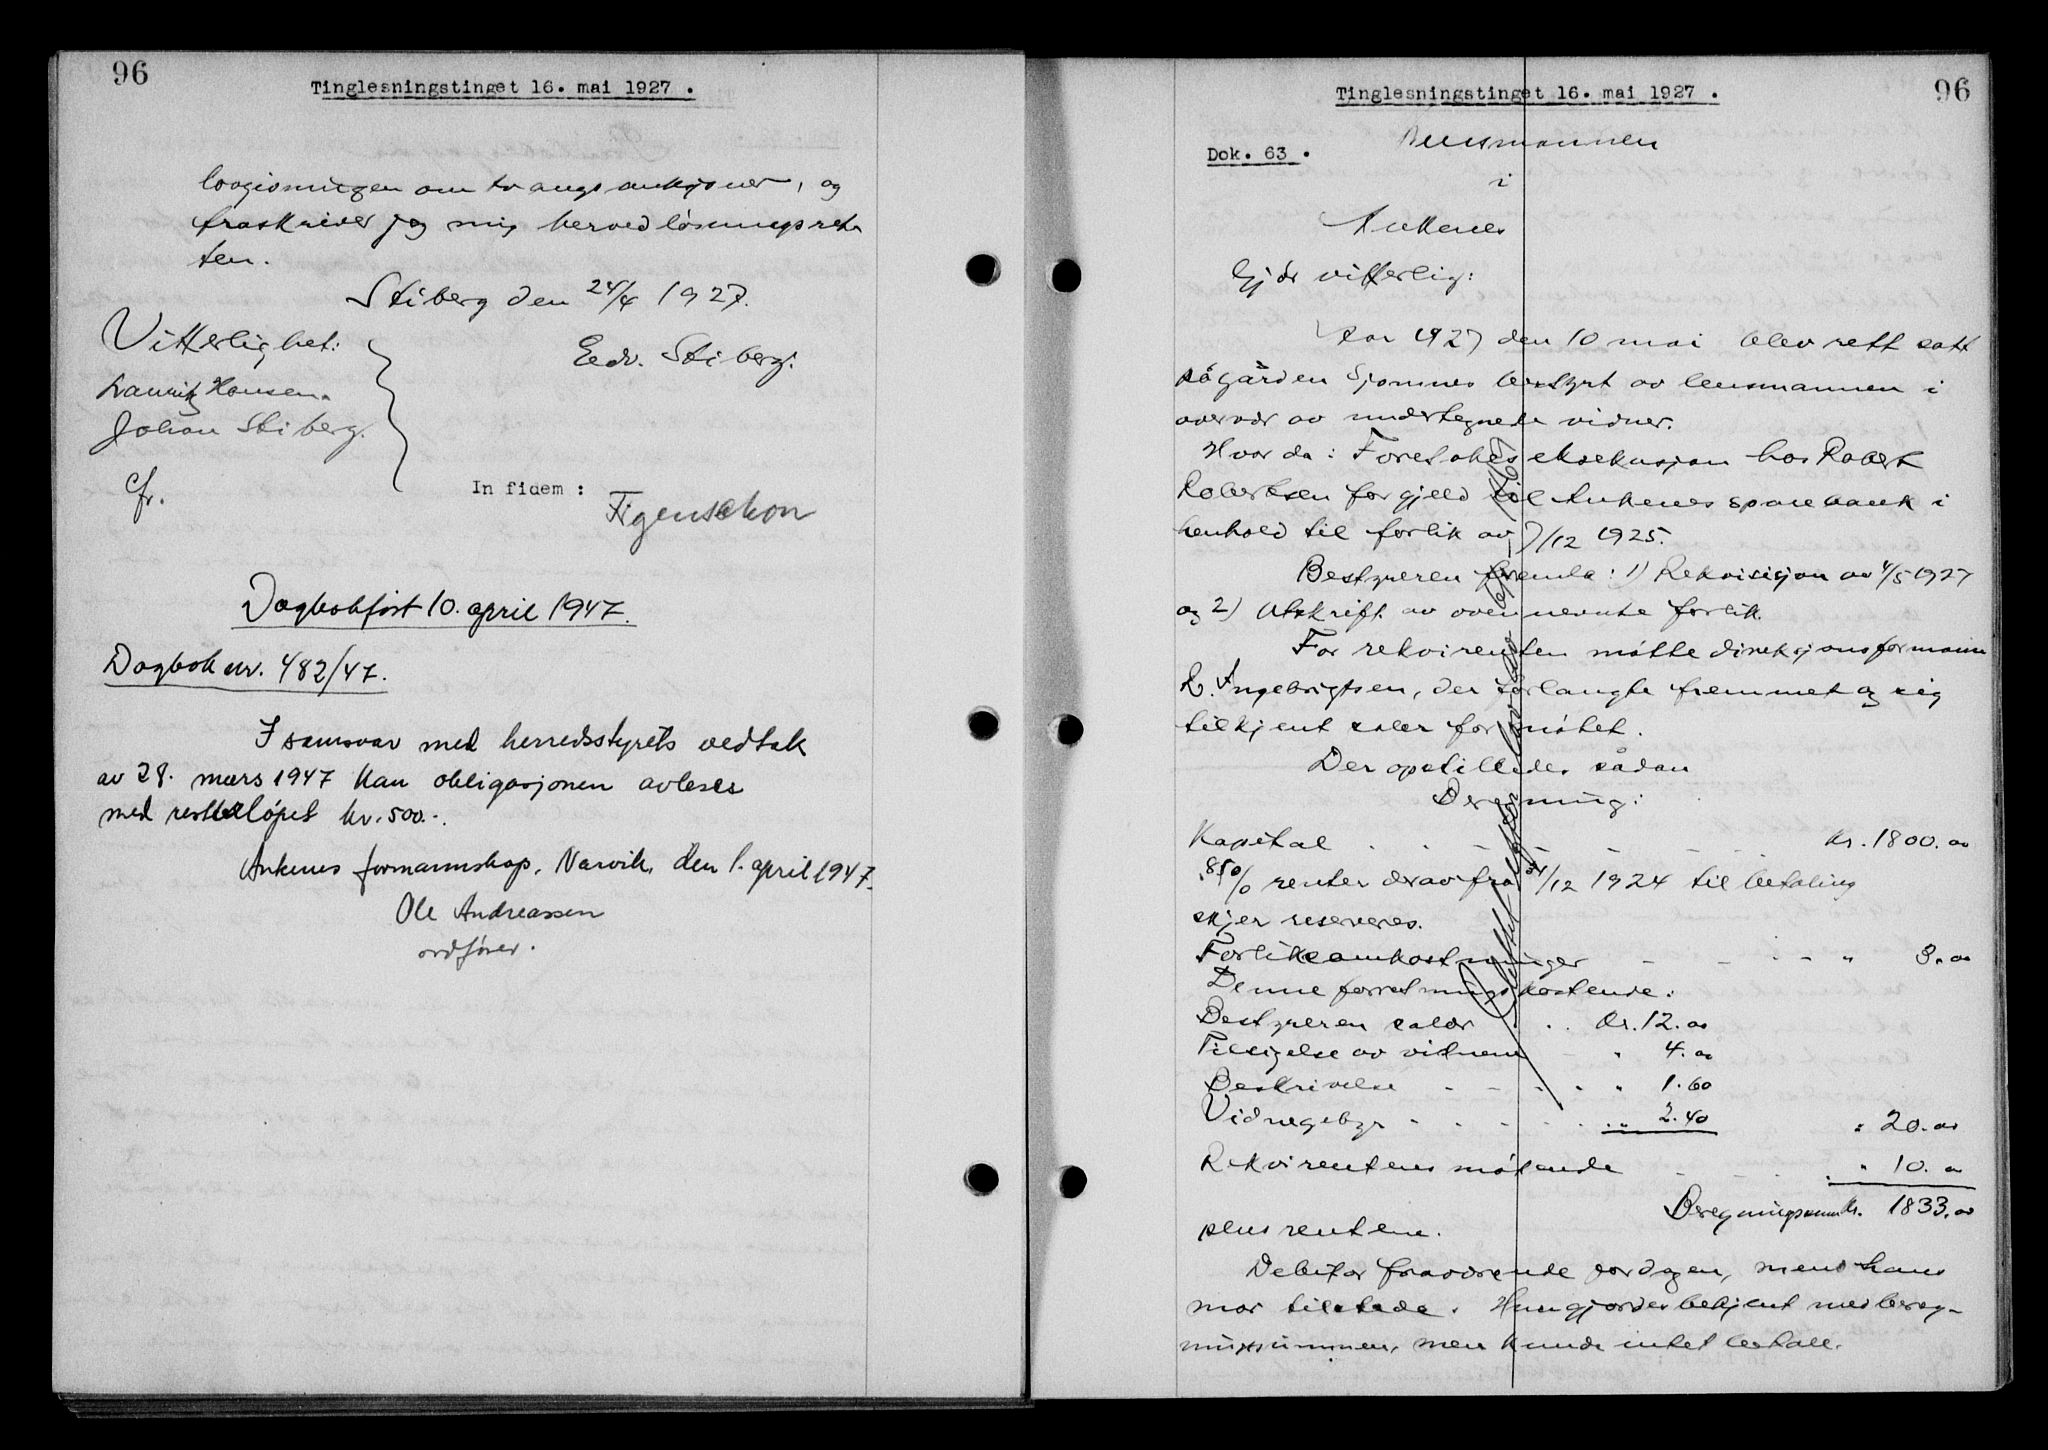 96
Tinglesningstinget 16. mai 1927 .
lovgivningen om tvangsauksjoner, og
fraskriver jeg mig herved løsningsret-
ten.
Stiberg den 24/4 1927.
Vitterlighet:
Edv. Stiberg.
Lauritz Hansen.
Johan Stiberg.
cfr.
In fidem :
Figenschou
Dagbokført 10. april 1947.
Dagbok nr. 482/47.
I samsvar med herredsstyrets vedtak
av 28. mars 1947 kan obligasjonen avleses
med restbeløpet kr. 500.-.
Ankenes formannskap, Narvik, den 1. april 1947.
Ole Andreassen
ordfører.
96
Tinglesningstinget 16. mai 1927 .
Dok. 63 .
Lensmannen
i
Ankenes
Gjør vitterlig:
Aar 1927 den 10 mai blev rett satt
på gården Sjomnes bestyrt av lensmannen i
overvær av undertegnede vidner.
Hvor da: Foretokes eksekusjon hos Robert
Robertsen for gjeld til Ankenes sparebank i
henhold til forlik av 7/12 1925.
Bestyreren fremla: 1) Rekvisisjon av 4/5 1927
og 2) Utskrift av ovennevnte forlik.
For rekvirenten møtte direksjonsformann
R. Angebrigtsen, der forlangte fremmet og sig
tilkjent salær for møtet.
Der opstilledes sådan
Beregning:
Kapital . . . - - - . kr. 1800.00
8½ % renter derav fra 31/12 1924 til betaling
skjer reserveres.
Forliksomkostninger - - - - " 3.00
Denne forretnings kostende:
Bestyreren salær . . Kr. 12.00
Tilsigelse av vitnene - " 4.00
Beskrivelse - - - - " 1.60
Vidnegebyr - - - - . " 2.40
" 20.00
Rekvirentens møtende - - - " 10.00
Beregningssum kr. 1833.00
plus rentene.
Debitor fraværende fordagen, mens hans
mor tilstede. Hun gjordes bekjent med bereg-
ningssummen, men kunde intet betale.